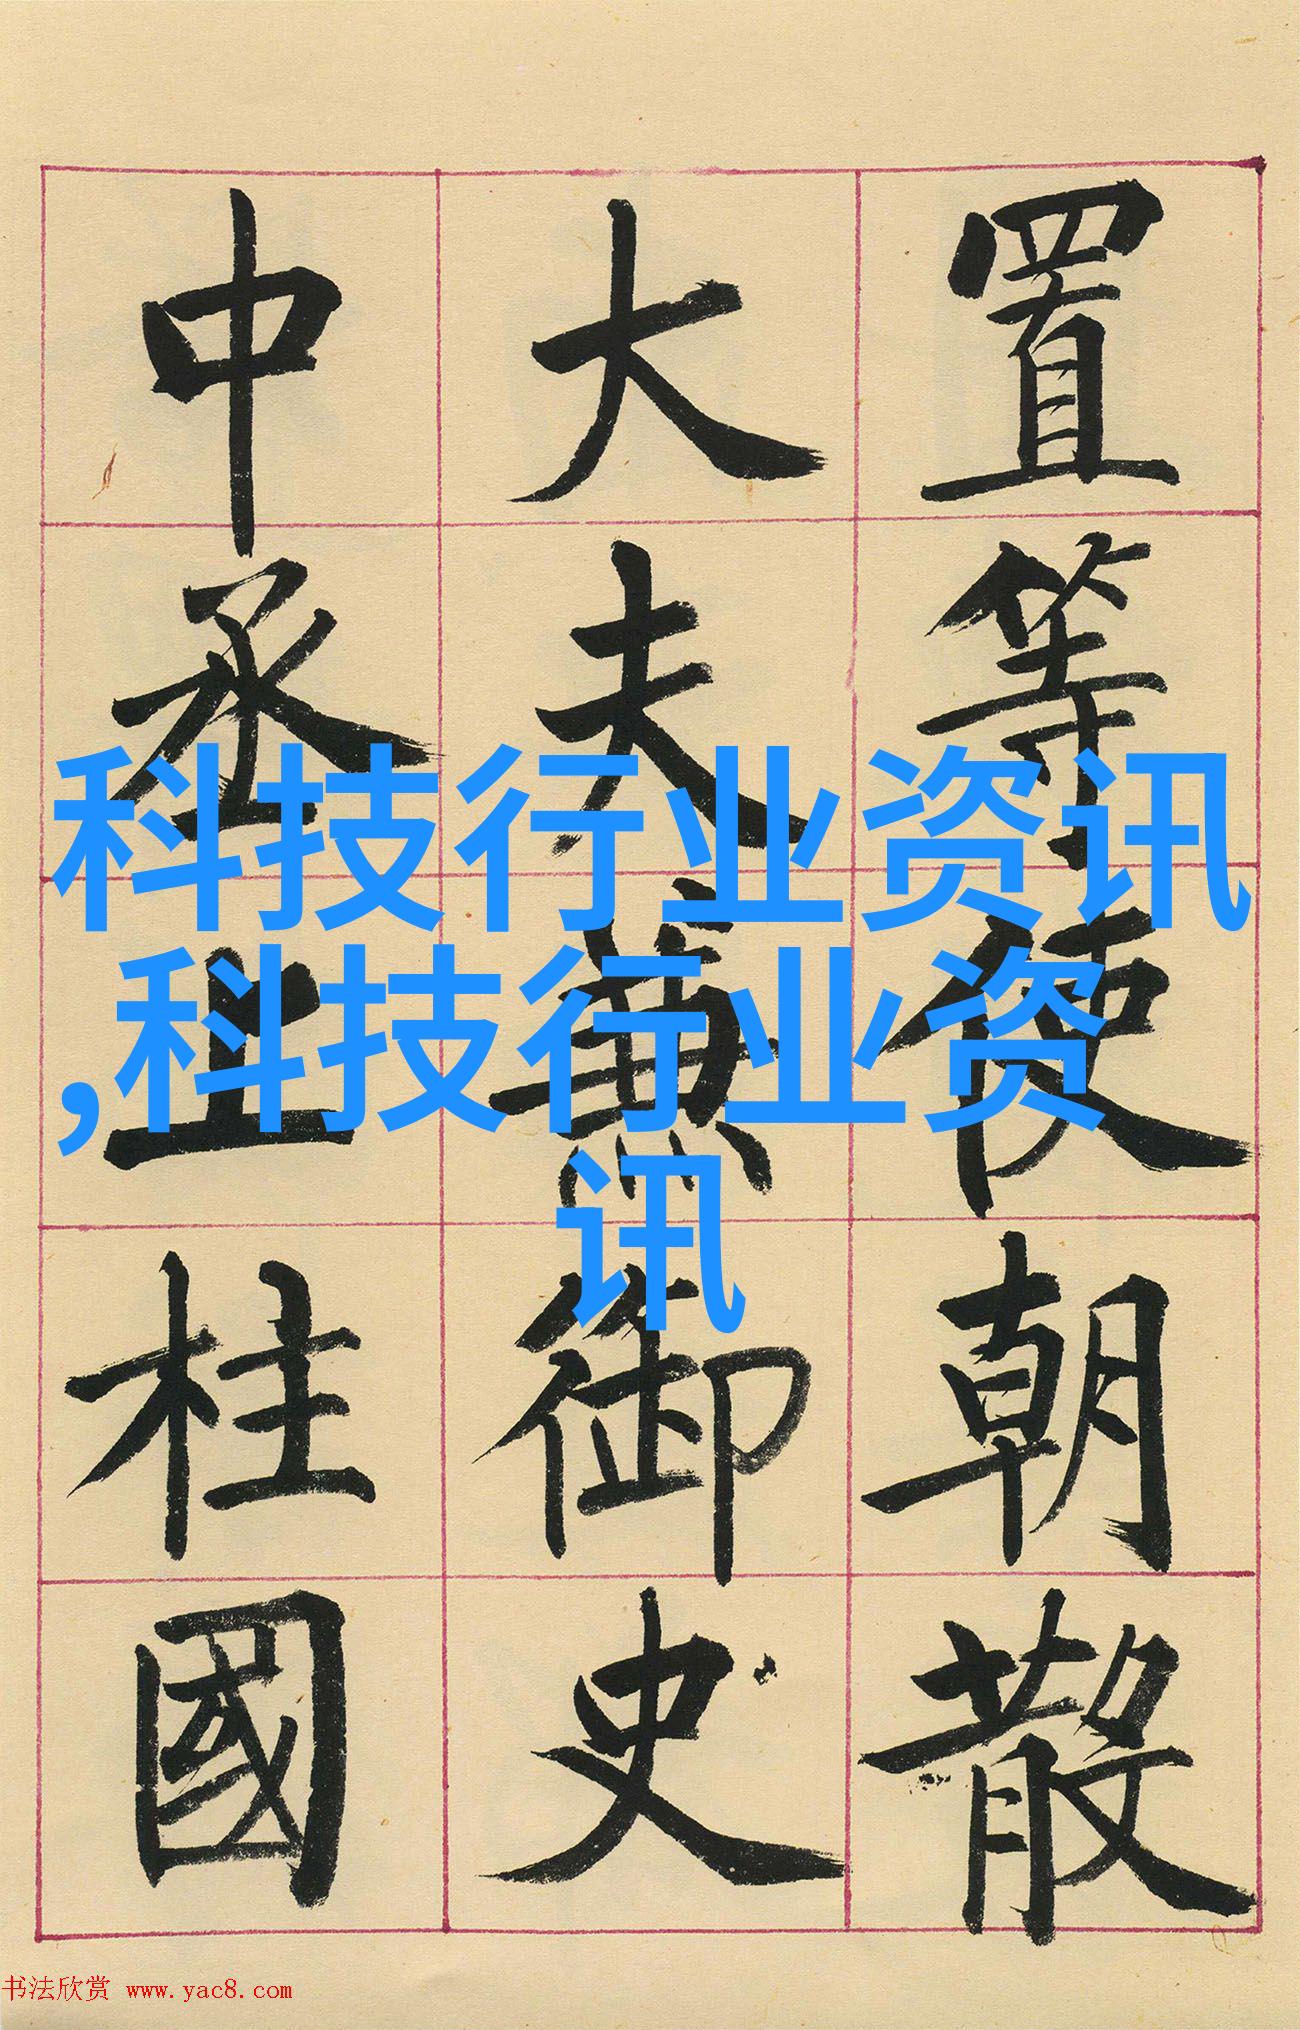 置等使朝散
大夫兼御史
中丞上柱國
科技行业资讯
,科技行业资
讯
书法欣赏 www.yac8.com